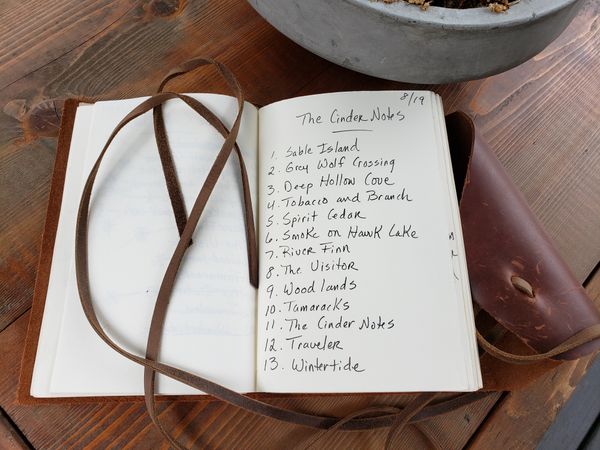 8/19
The Cinder Notes
1. Sable Island
2. Grey Wolf Crossing
3. Deep Hollow Cove
4. Tobacco and Branch
5. Spirit Cedar
6. Smoke on Hawk Lake
7. River Finn
8. The Visitor
9. Woodlands
10. Tamaracks
11. The Cinder Notes
12. Traveler
13. Wintertide